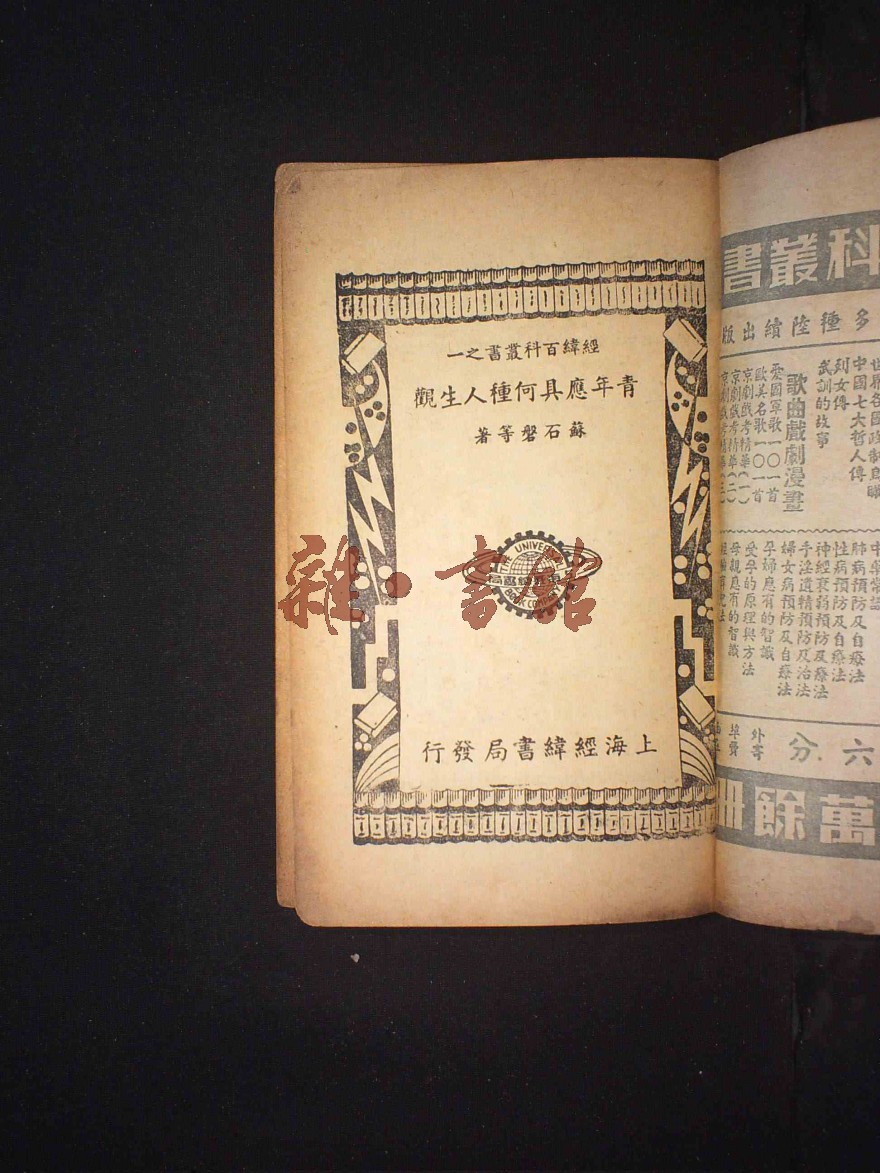 經緯百科叢書之一
青年應具何種人生觀
蘇石磐等著
THE UNIVERSE
BOOK COMPANY
上海經緯書局發行
雜·書館
科叢書
多種陸續出版
世界各國政制鳥瞰
中國七大哲人傳
列女傳
武訓的故事
歌曲戲劇漫畫
愛國軍歌一〇一首
歐美名歌一〇一首
京劇戲考精華(一)
京劇戲考精華(二)
京劇戲考精華(三)
中學常識
肺病預防及自療法
性病預防及自療法
神經衰弱預防及療法
手淫遺精預防及治法
婦女病預防及自療法
孕婦應有的智識
受孕的原理與方法
母親應有的智識
六分
外埠
寄費
萬餘冊